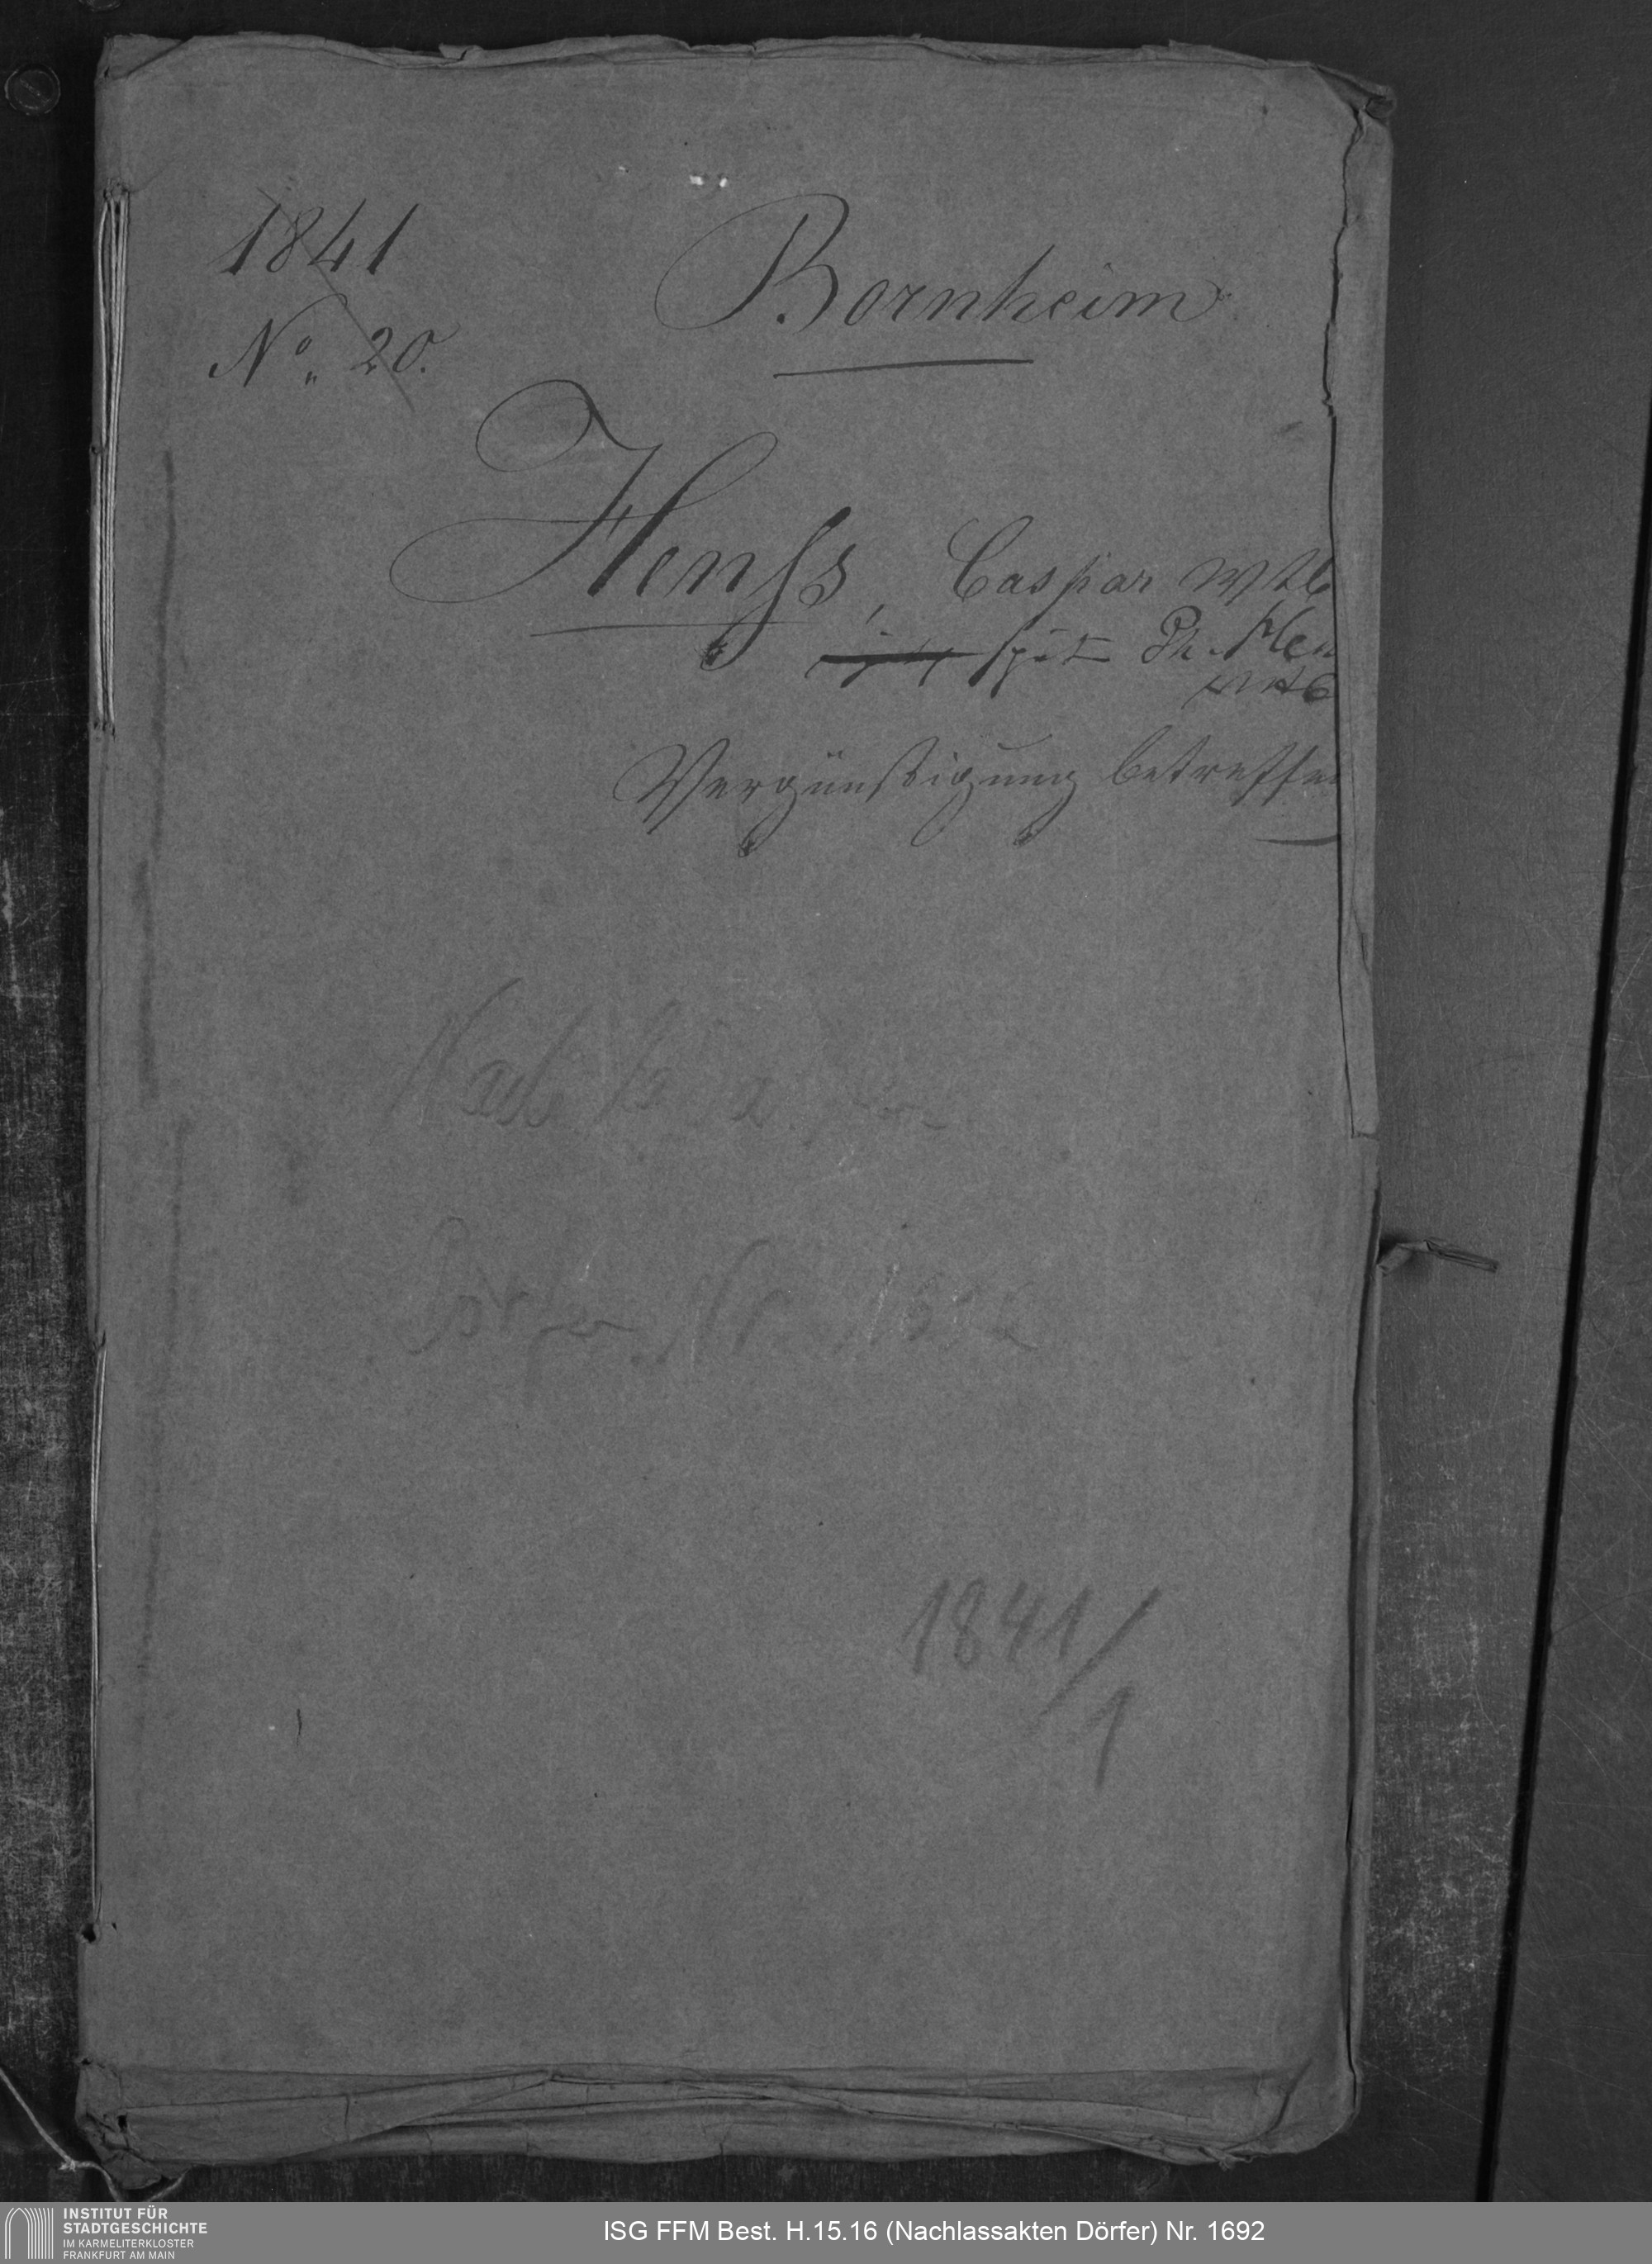 1841
No. 20.
Bornheim
Henß, Caspar Wtb
spät Ph. Hen
Wtb
Vergünstigung betreffen
Nachlassakten
Dörfer Nr. 1692
1841/1
INSTITUT FÜR
STADTGESCHICHTE
IM KARMELITERKLOSTER
FRANKFURT AM MAIN
ISG FFM Best. H.15.16 (Nachlassakten Dörfer) Nr. 1692